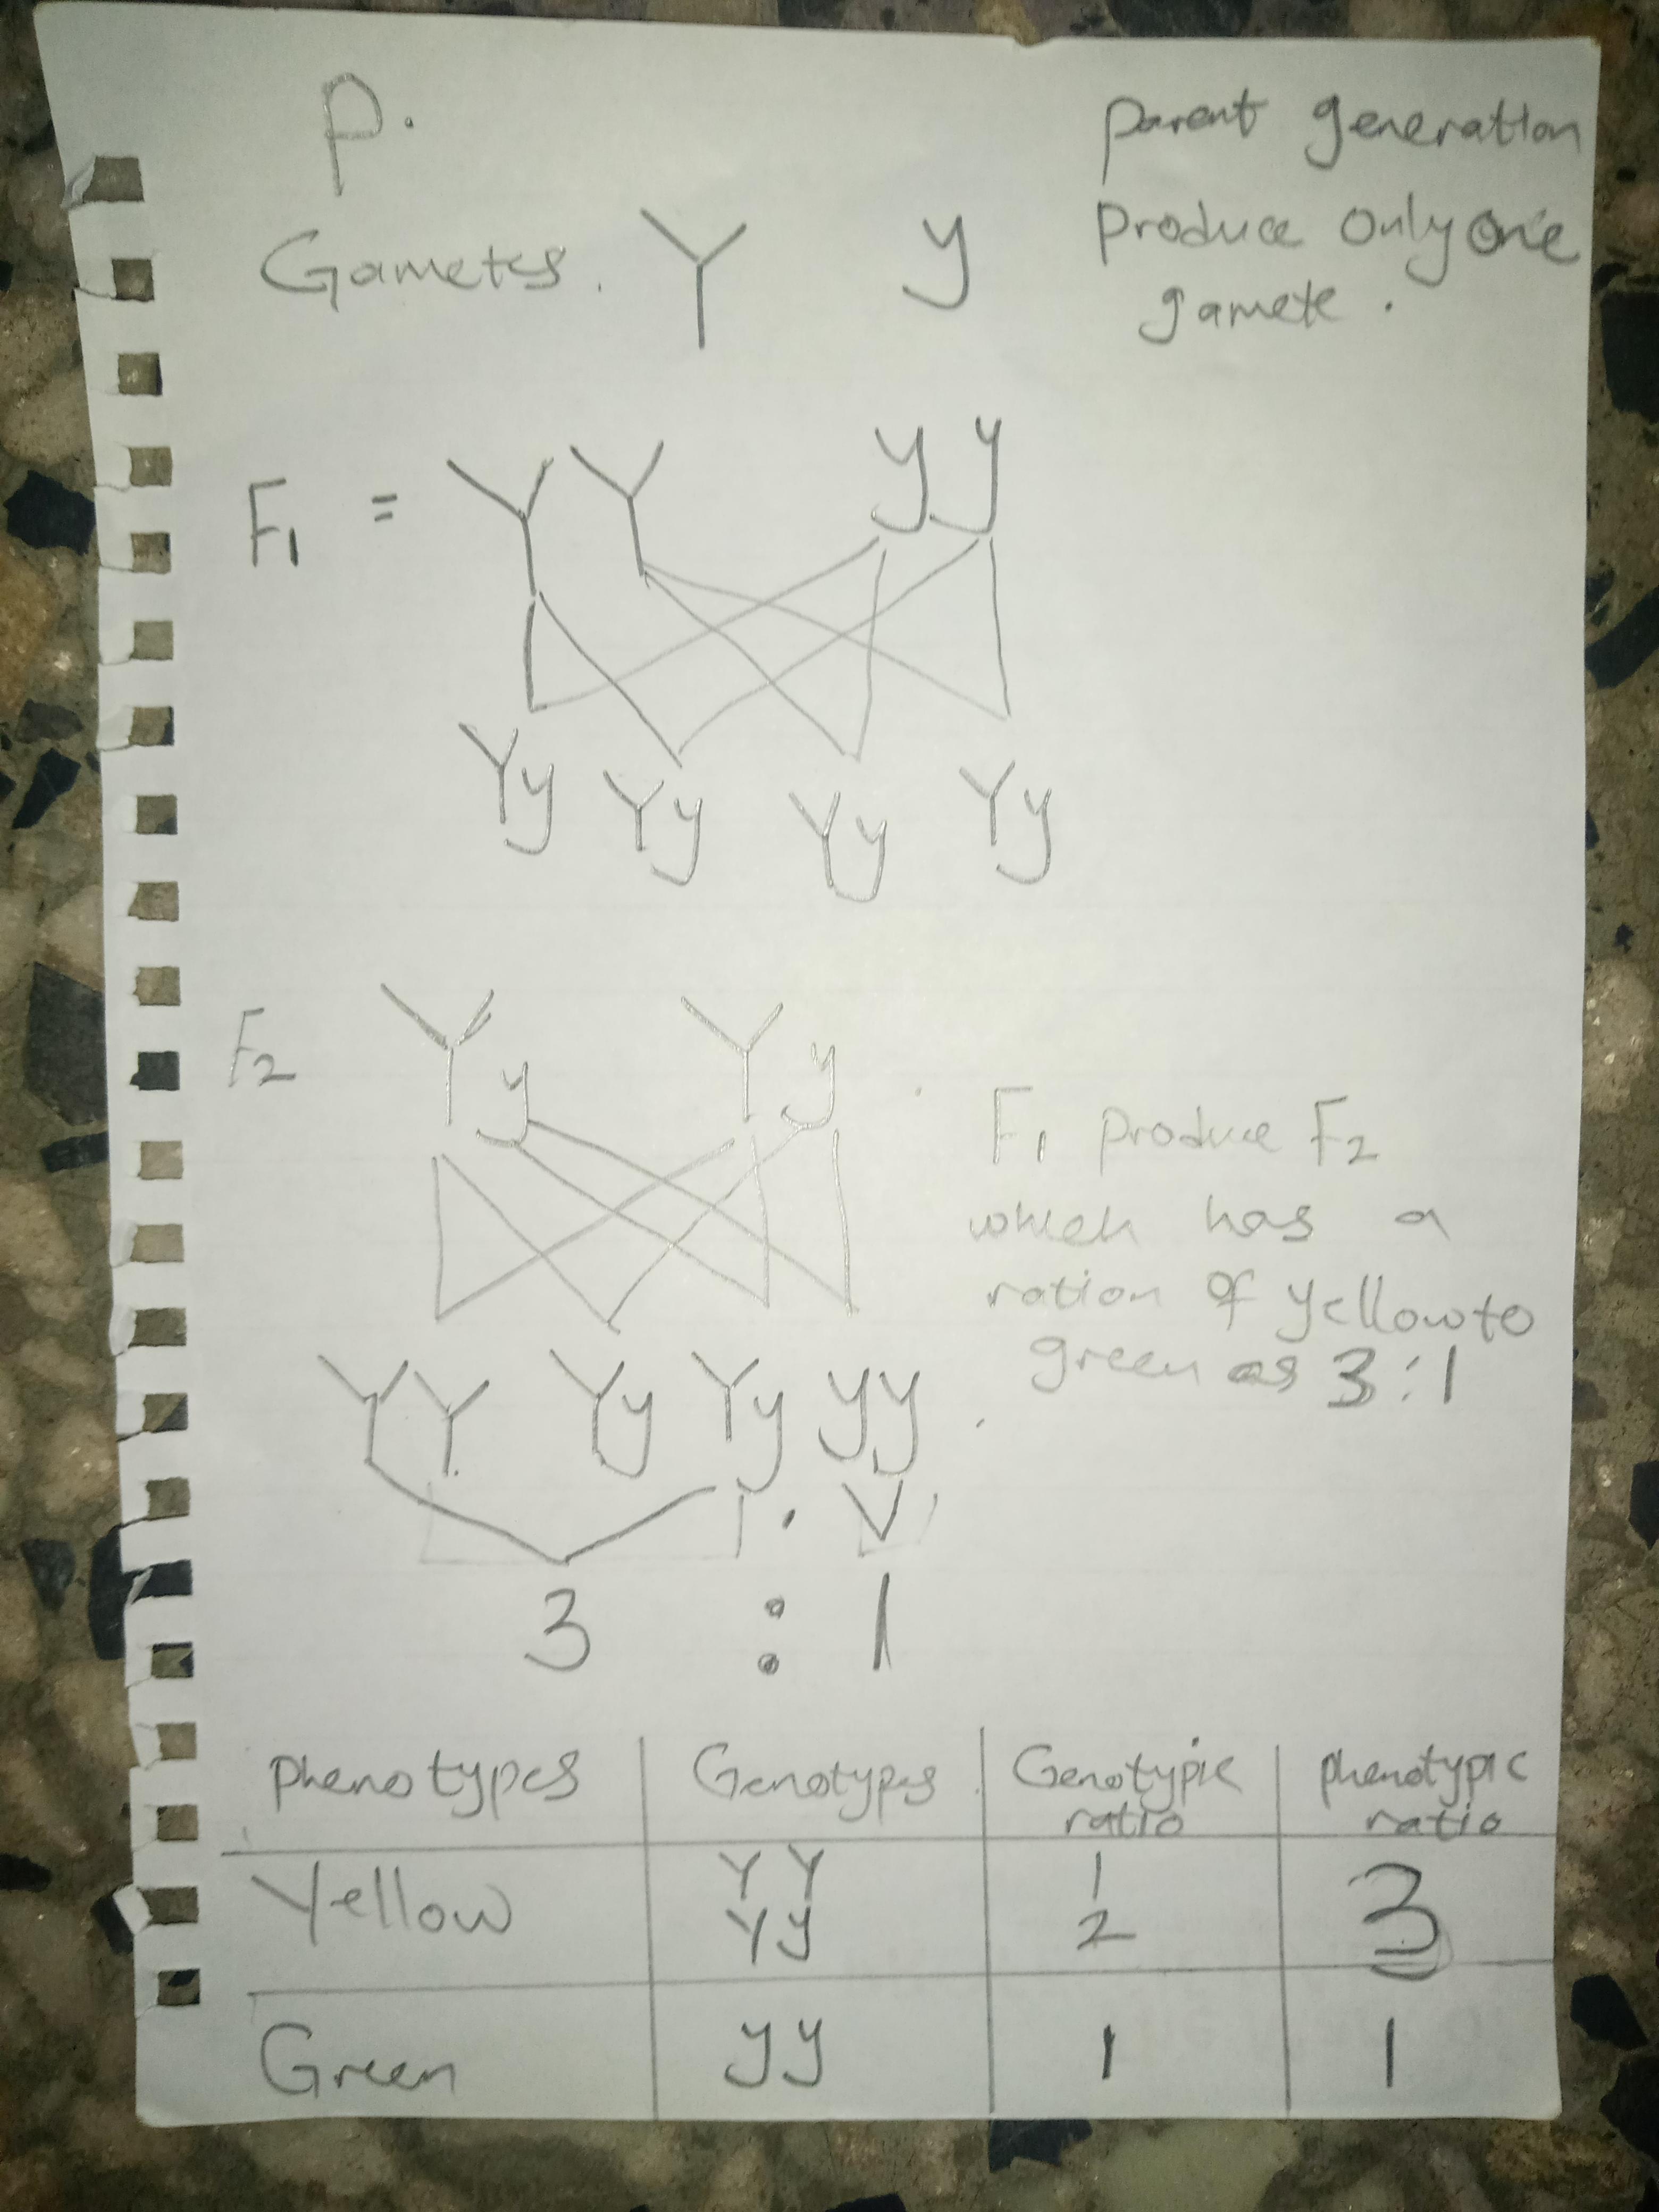 P.
parent generation
Gametes. Y y
produce only one
gamete.
F1 = YY yy
Yy Yy Yy Yy
F2 Yy Yy
F1 produce F2
which has a
ration of yellow to
green as 3:1
YY Yy Yy yy
3 : 1
phenotypes Genotypes Genotypic ratio phenotypic ratio
Yellow YY 1 3
Yy 2
Green yy 1 1